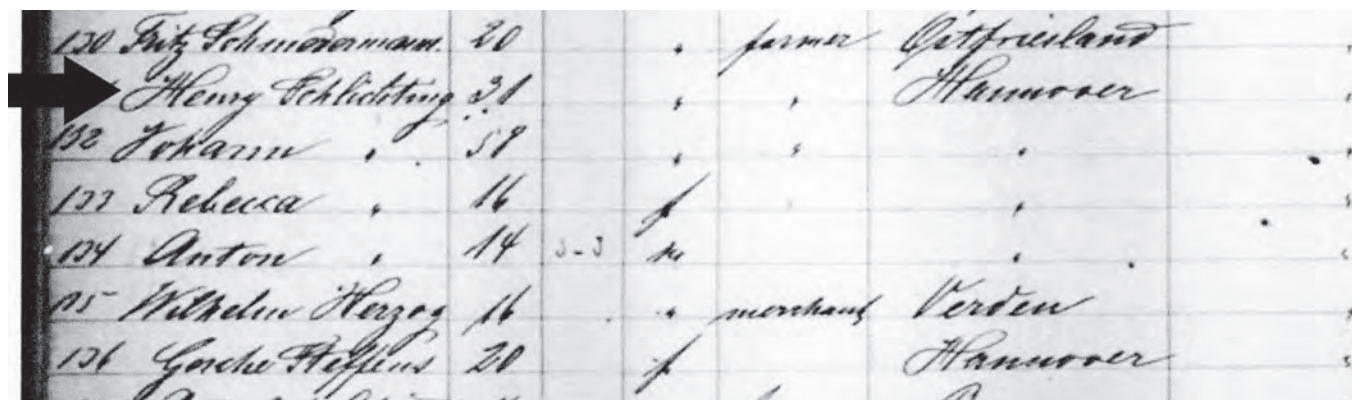 130 Fritz Schmedermann. 20 " farmer Ostfriesland "
Henry Schlichting 31 " " Hannover "
132 Johann " 58 " " " "
133 Rebecca " 16 f " "
134 Anton " 14 m " "
135 Wilhelm Herzog 16 " merchant Verden "
136 Gesche Steffens 20 f Hannover "